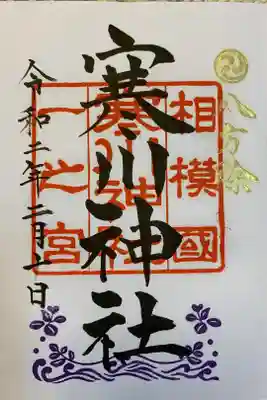 八方除
相模國
寒川神社
一之宮
寒川神社
令和二年二月十一日